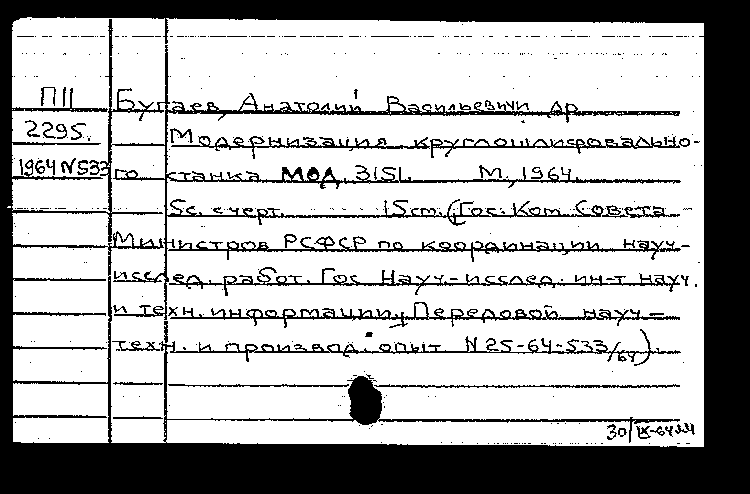 ПII Бугаев, Анатолий Васильевичи др
2295. Модернизация круглошлифовально-
1964 N533 го станка МОД. 3151. М., 1964.
5с. с черт. 15ст. (Гос. Ком. Совета
Министров РСФСР по координации науч-
исслед. работ. Гос Науч.-исслед. ин-т науч.
и техн. информации. Передовой науч-
техн. и производ. опыт N 25-64-533/64).
30/IX-64